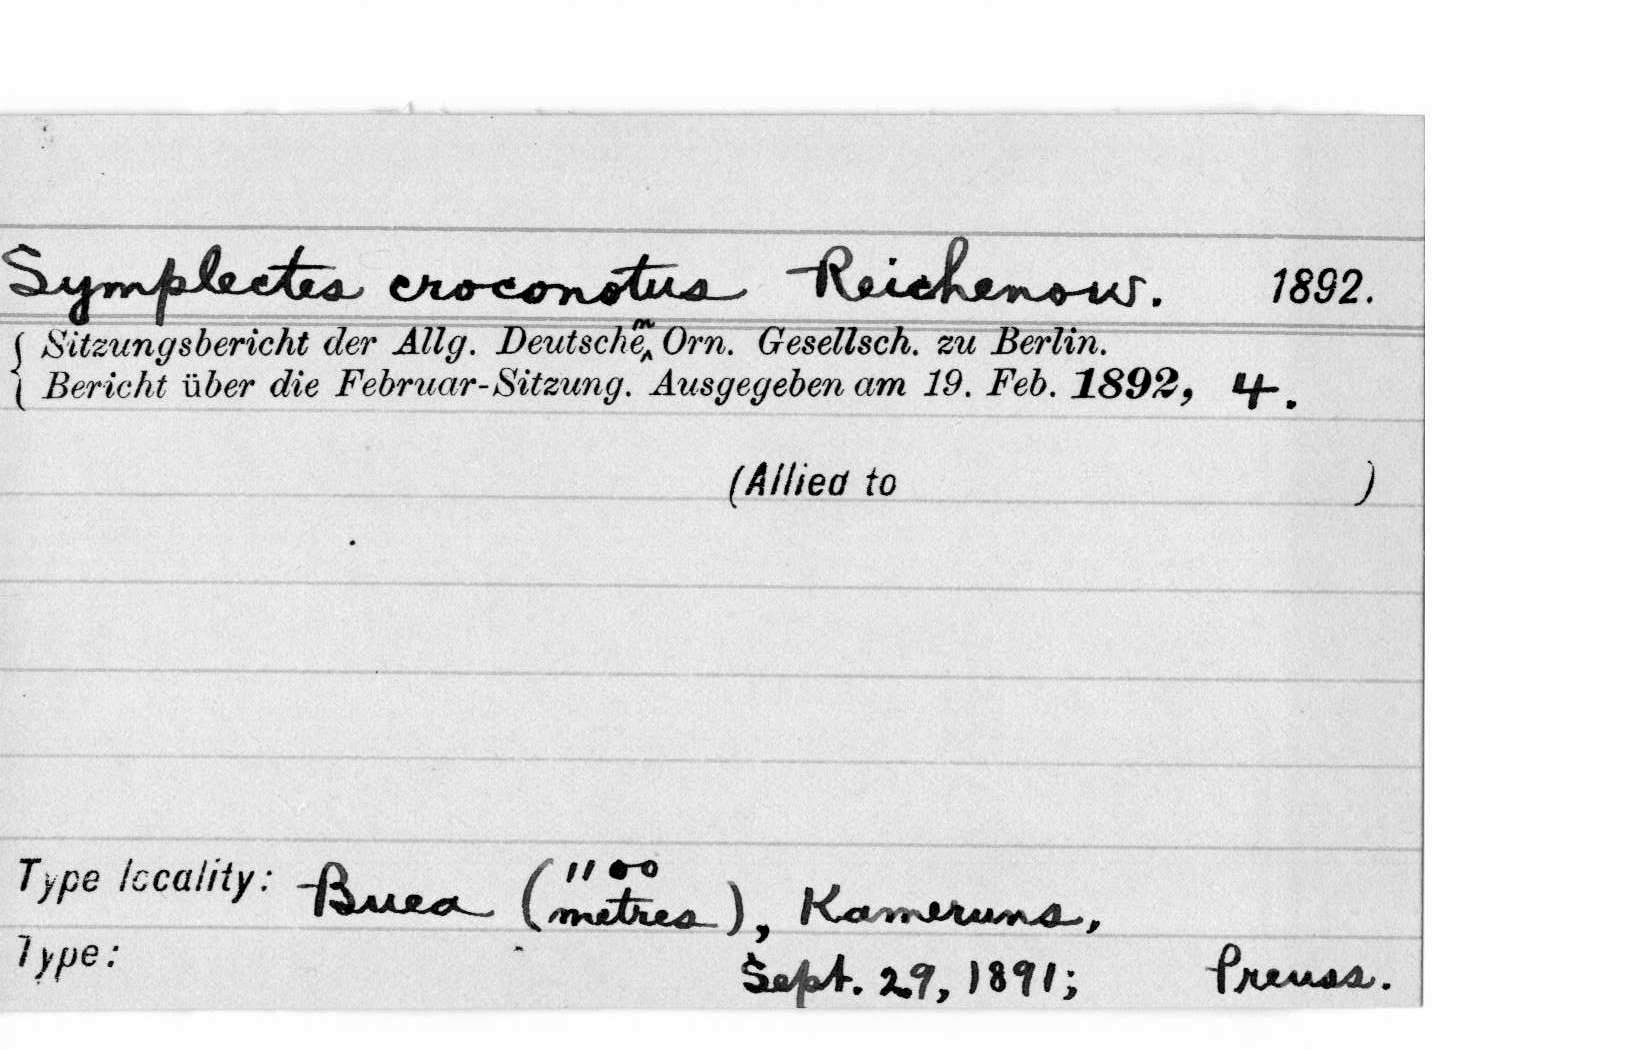 Symplectes croconotus Reichenow. 1892.
{ Sitzungsbericht der Allg. Deutschen Orn. Gesellsch. zu Berlin.
Bericht über die Februar-Sitzung. Ausgegeben am 19. Feb. 1892, 4.
(Allied to )
Type locality: Buea (1100 metres), Kameruns,
Type: Sept. 29, 1891; Preuss.